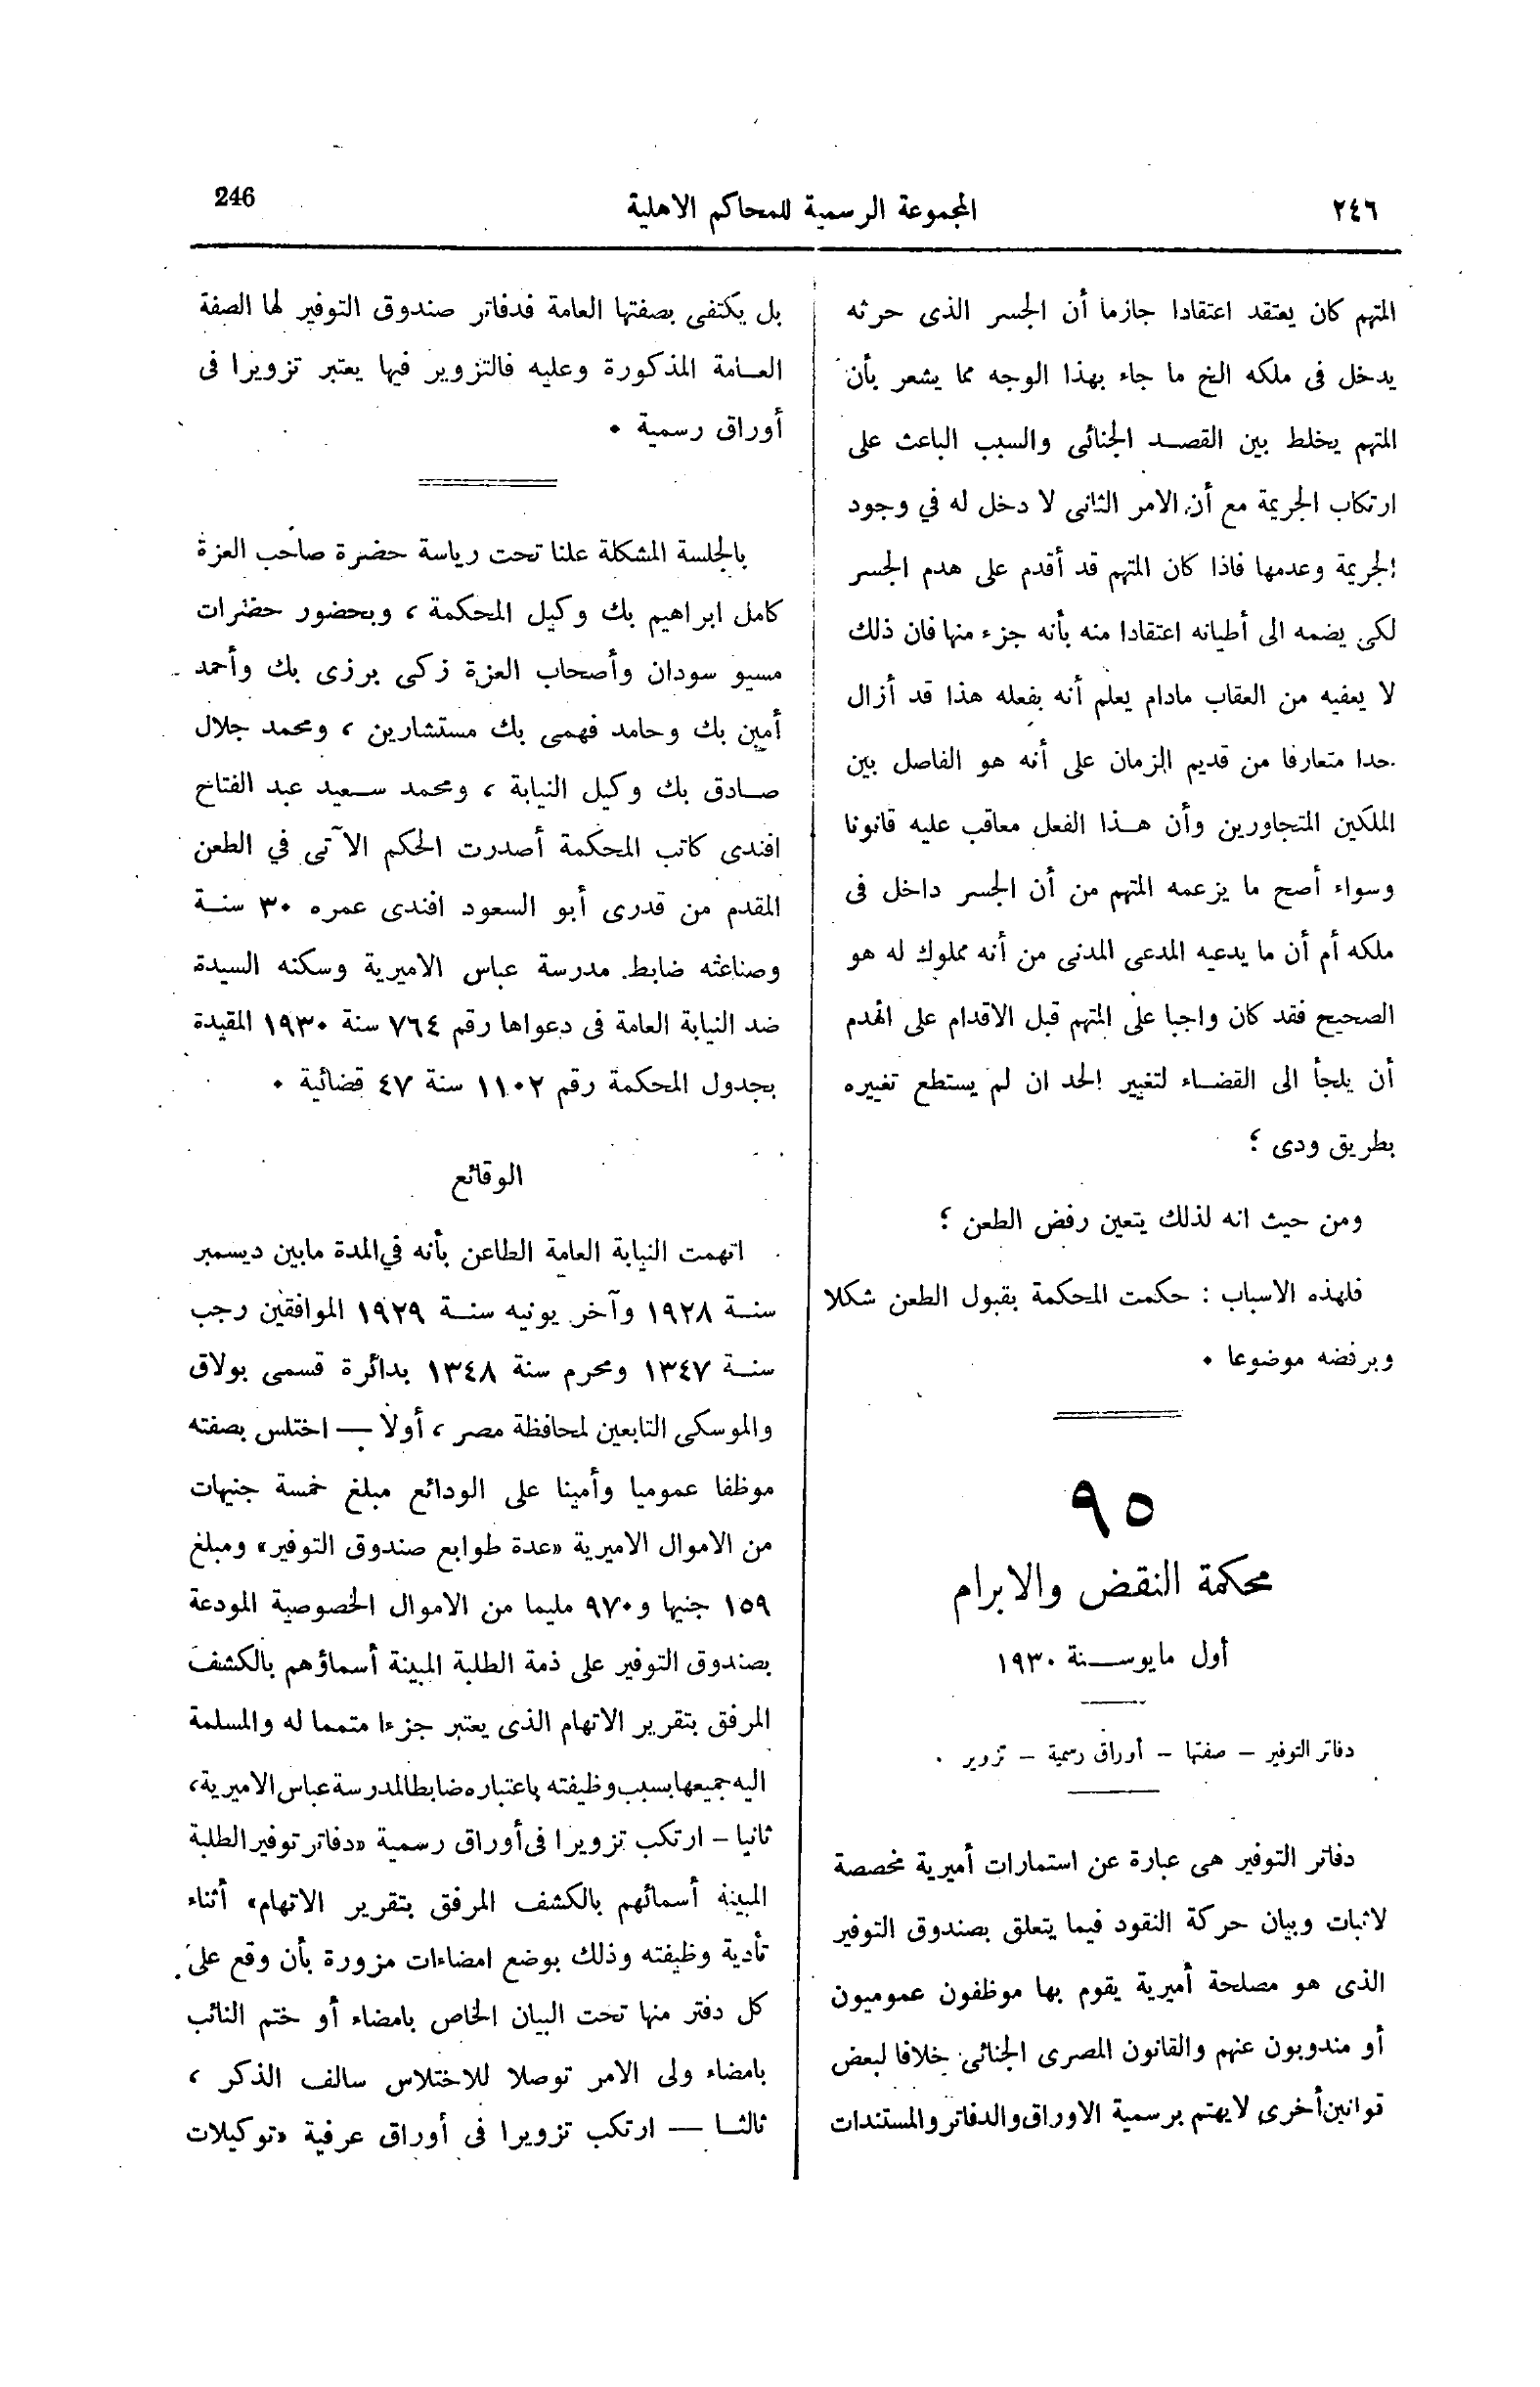 ٢٤٦ المجموعة الرسمية للمحاكم الاهلية 246
المتهم كان يعتقد اعتقادا جازما أن الجسر الذى حرثه
يدخل فى ملكه الخ ما جاء بهذا الوجه مما يشعر بأن
المتهم يخلط بين القصد الجنائى والسبب الباعث على
ارتكاب الجريمة مع أن الامر الثانى لا دخل له في وجود
الجريمة وعدمها فاذا كان المتهم قد أقدم على هدم الجسر
لكى يضمه الى أطيانه اعتقادا منه بأنه جزء منها فان ذلك
لا يعفيه من العقاب مادام يعلم أنه بفعله هذا قد أزال
حدا متعارفا من قديم الزمان على أنه هو الفاصل بين
الملكين المتجاورين وأن هذا الفعل معاقب عليه قانونا
وسواء أصح ما يزعمه المتهم من أن الجسر داخل فى
ملكه أم أن ما يدعيه المدعى المدنى من أنه مملوك له هو
الصحيح فقد كان واجبا على المتهم قبل الاقدام على الهدم
أن يلجأ الى القضاء لتغيير الحد ان لم يستطع تغييره
بطريق ودى ؛
ومن حيث انه لذلك يتعين رفض الطعن ؛
فلهذه الاسباب : حكمت المحكمة بقبول الطعن شكلا
وبرفضه موضوعا .
٩٥
محكمة النقض والابرام
أول مايو سنة ١٩٣٠
دفاتر التوفير – صفتها – أوراق رسمية – تزوير .
دفاتر التوفير هى عبارة عن استمارات أميرية مخصصة
لاثبات وبيان حركة النقود فيما يتعلق بصندوق التوفير
الذى هو مصلحة أميرية يقوم بها موظفون عموميون
أو مندوبون عنهم والقانون المصرى الجنائى خلافا لبعض
قوانين أخرى لا يهتم برسمية الاوراق والدفاتر والمستندات
بل يكتفى بصفتها العامة فدفاتر صندوق التوفير لها الصفة
العامة المذكورة وعليه فالتزوير فيها يعتبر تزويرا فى
أوراق رسمية .
بالجلسة المشكلة علنا تحت رياسة حضرة صاحب العزة
كامل ابراهيم بك وكيل المحكمة ، وبحضور حضرات
مسيو سودان وأصحاب العزة زكى برزى بك وأحمد
أمين بك وحامد فهمى بك مستشارين ، ومحمد جلال
صادق بك وكيل النيابة ، ومحمد سعيد عبد الفتاح
افندى كاتب المحكمة أصدرت الحكم الآتى في الطعن
المقدم من قدرى أبو السعود افندى عمره ٣٠ سنة
وصناعته ضابط مدرسة عباس الاميرية وسكنه السيدة
ضد النيابة العامة فى دعواها رقم ٧٦٤ سنة ١٩٣٠ المقيدة
بجدول المحكمة رقم ١١٠٢ سنة ٤٧ قضائية .
الوقائع
اتهمت النيابة العامة الطاعن بأنه في المدة مابين ديسمبر
سنة ١٩٢٨ وآخر يونيه سنة ١٩٢٩ الموافقين رجب
سنة ١٣٤٧ ومحرم سنة ١٣٤٨ بدائرة قسمى بولاق
والموسكى التابعين لمحافظة مصر ، أولا — اختلس بصفته
موظفا عموميا وأمينا على الودائع مبلغ خمسة جنيهات
من الاموال الاميرية «عدة طوابع صندوق التوفير» ومبلغ
١٥٩ جنيها و ٩٧٠ مليما من الاموال الخصوصية المودعة
بصندوق التوفير على ذمة الطلبة المبينة أسماؤهم بالكشف
المرفق بتقرير الاتهام الذى يعتبر جزءا متمما له والمسلمة
اليه جميعها بسبب وظيفته باعتباره ضابطا لمدرسة عباس الاميرية ،
ثانيا – ارتكب تزويرا فى أوراق رسمية «دفاتر توفير الطلبة
المبينة أسمائهم بالكشف المرفق بتقرير الاتهام» أثناء
تأدية وظيفته وذلك بوضع امضاءات مزورة بأن وقع على
كل دفتر منها تحت البيان الخاص بامضاء أو ختم النائب
بامضاء ولى الامر توصلا للاختلاس سالف الذكر ،
ثالثا — ارتكب تزويرا فى أوراق عرفية «توكيلات